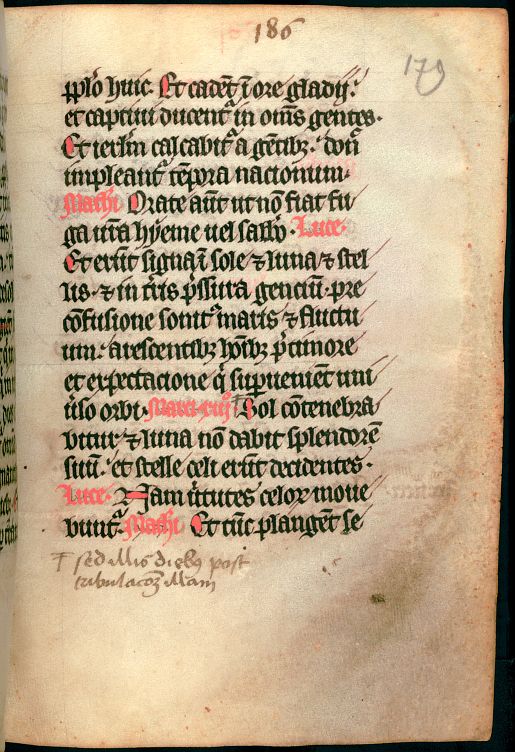 186
179
pplo huic. Et cadēt ī ore gladij.
et captiui ducent̉ in om̄s gentes.
Et ierlm̄ calcabit̉ a gētibꝫ. don̄
impleant̉ tēpora nacionum.
Mathi Orate aūt ut nō fiat fu
ga ur̄a hyeme uel sabb̄o. Luce.
Et erūt signa ī sole ⁊ luna ⁊ stel
lis. ⁊ in t̄ris p̄ssura genciū. pre
cōfusione sonit̉ maris ⁊ fluctu
um. arescentibꝫ hōibꝫ p̄ timore
et expectacione q̄ supuenient uni
u̓so orbi. Marci xiij † Sol cōtenebra
bitur ⁊ luna nō dabit splendorē
suū. et stelle celi erūt decidentes.
Luce. Nam u̓tutes celoꝝ moue
bunt̉. Mathi Et tūc plangēt se
† sed illis diebꝫ post
tribulacoē illam